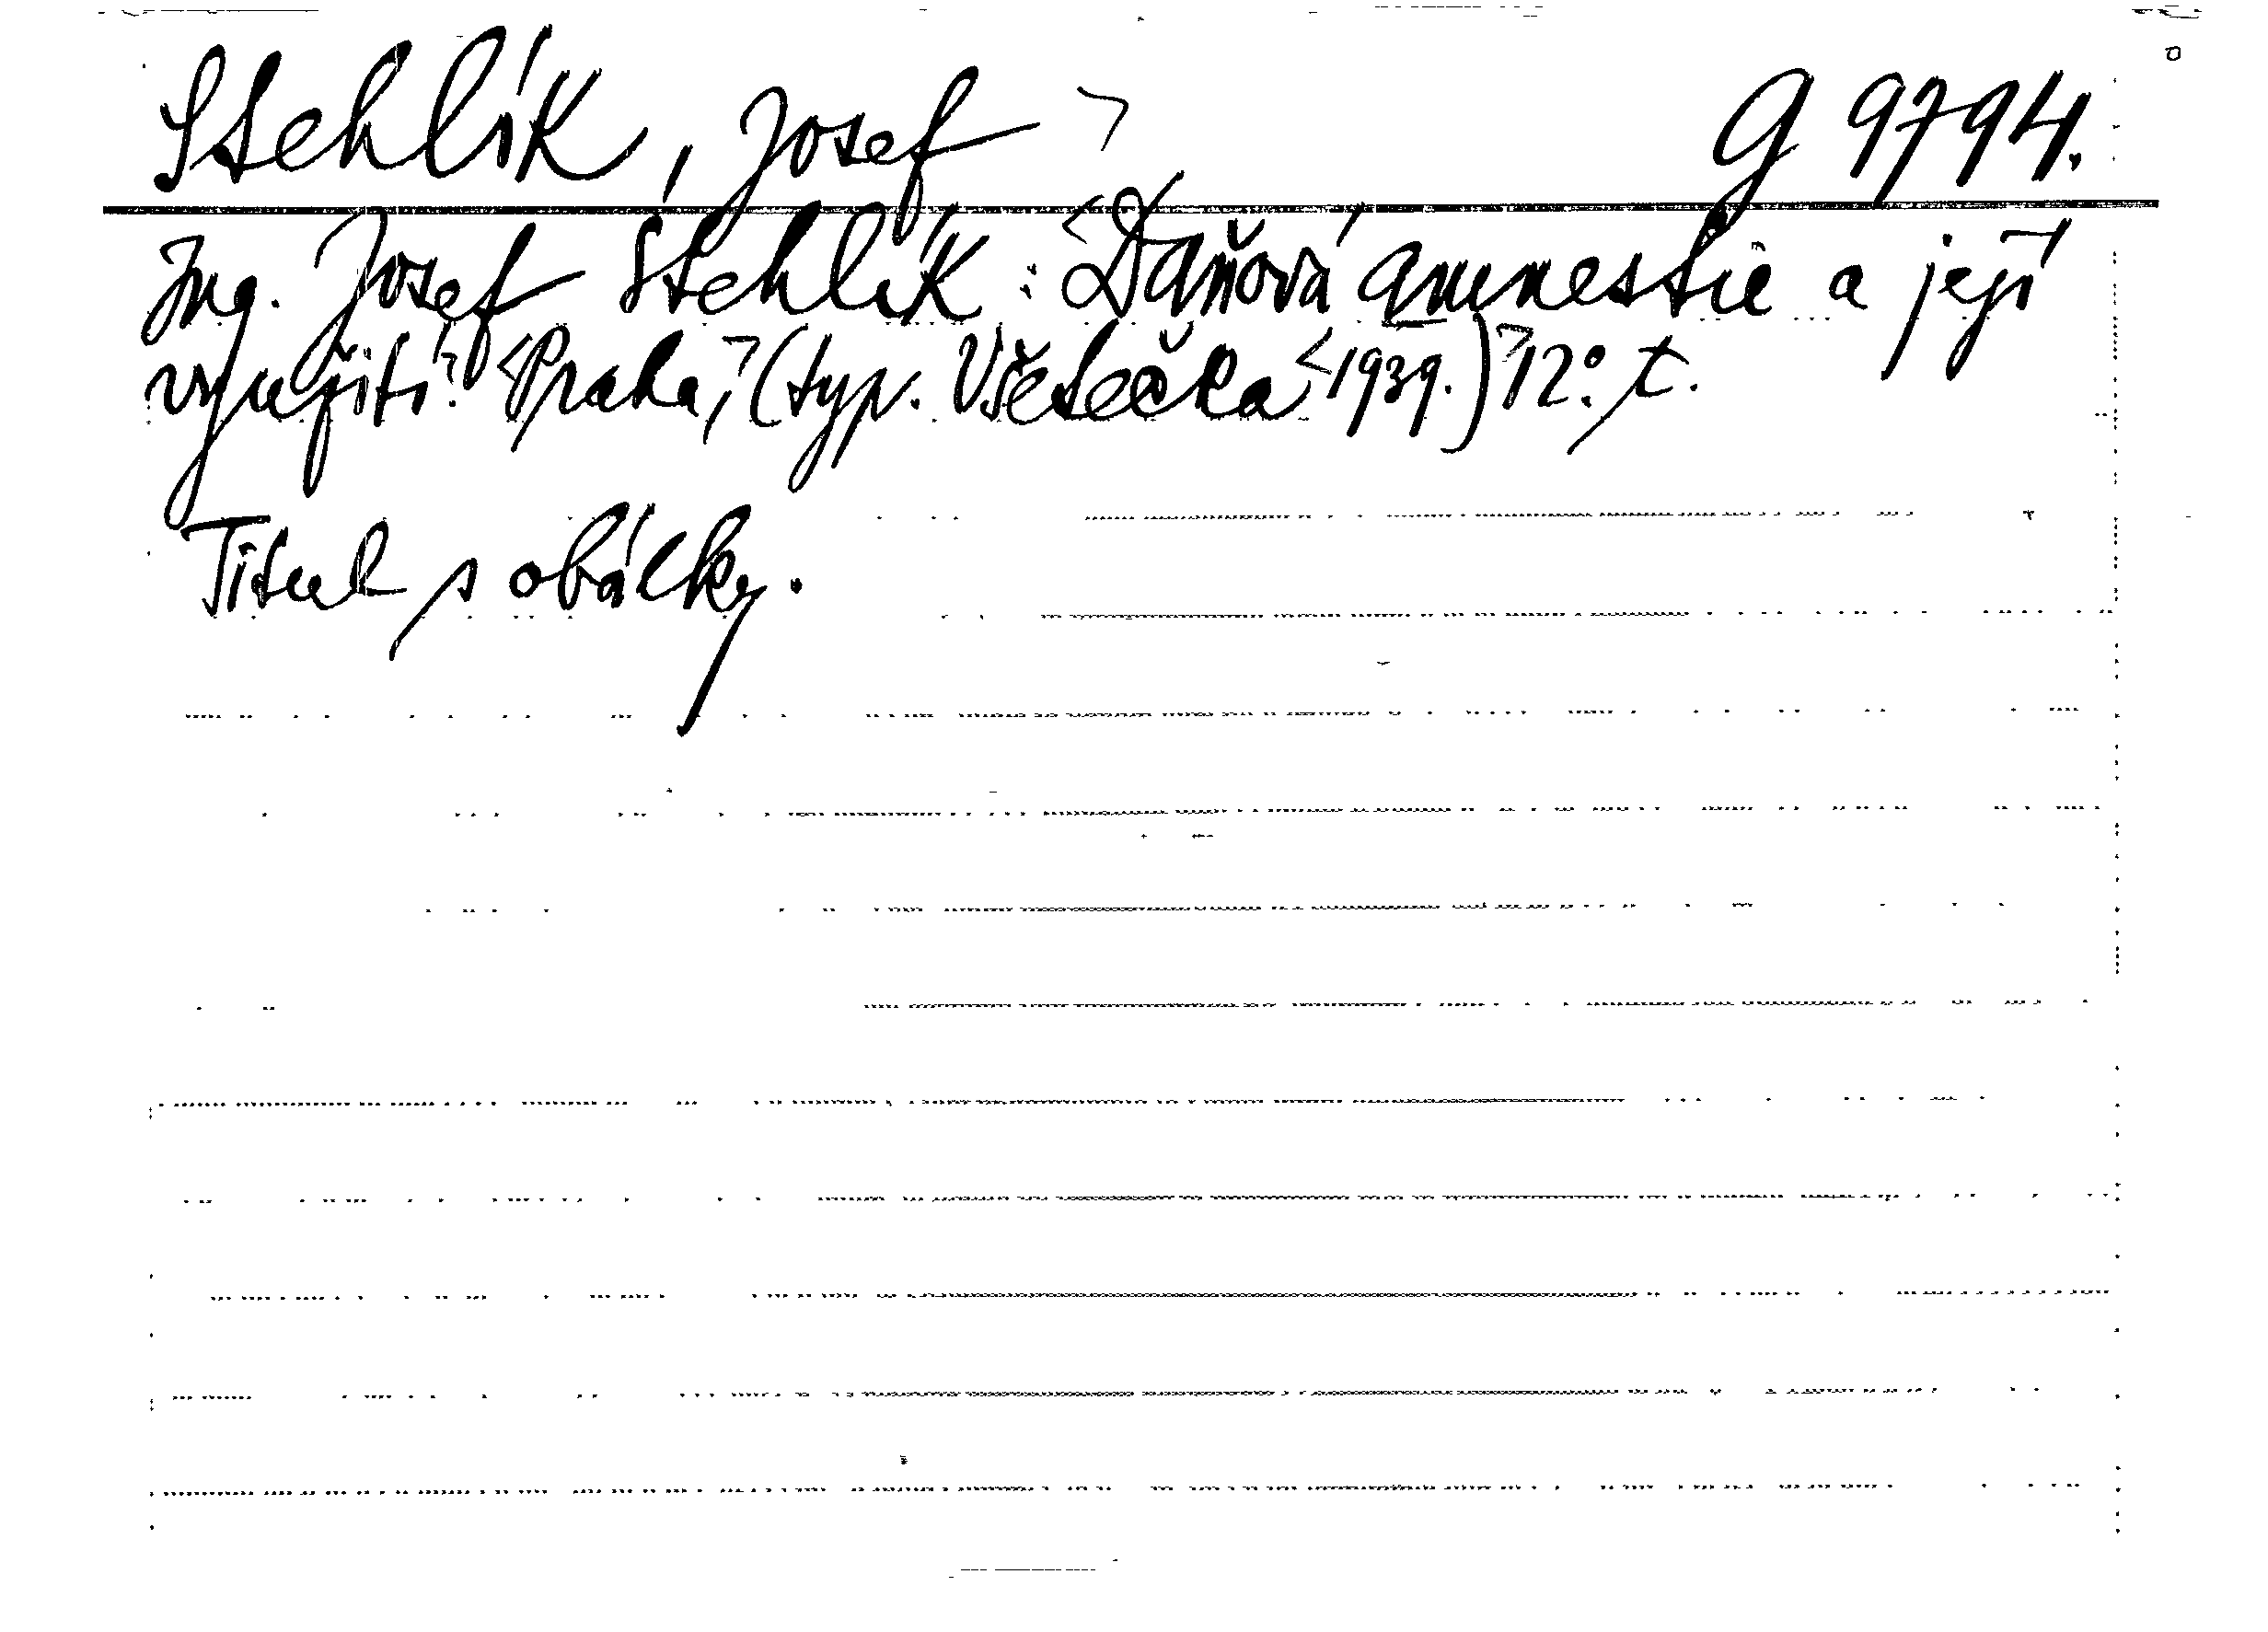 Stehlík, Josef ㄱ G 9794.
Ing. Josef Stehlík: <Daňová amnestie a její
využití.ㄱ <Praha,ㄱ (typ. Všetečka <1939.)ㄱ 12°. t.
Titul s obálky.